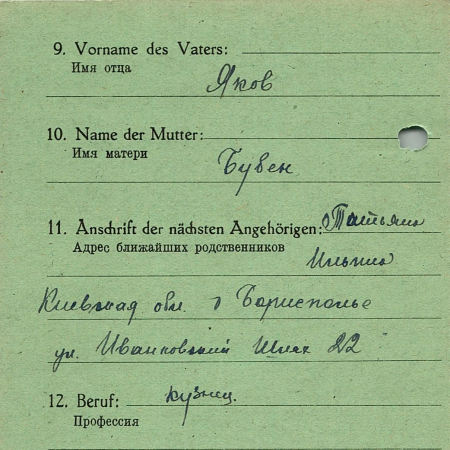 9. Vorname des Vaters:
Имя отца
Яков
10. Name der Mutter:
Имя матери
Бувен
11. Anschrift der nächsten Angehörigen: Татьяна
Адрес ближайших родственников
Ильина
Киевская обл. г Борисполье
ул. Иванковский Шлях 22
12. Beruf: кузнец.
Профессия